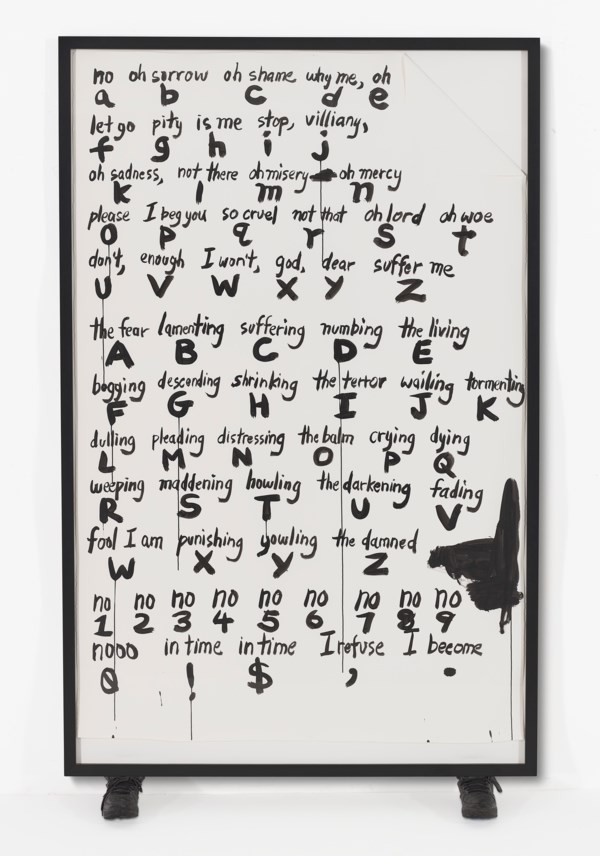 no oh sorrow oh shame why me, oh
a b c d e
let go pity is me stop, villiany,
f g h i j
oh sadness, not there oh misery oh mercy
k l m n
please I beg you so cruel not that oh lord oh woe
o p q r s t
don't, enough I won't, god, dear suffer me
u v w x y z
the fear lamenting suffering numbing the living
A B C D E
begging descending shrinking the terror wailing tormenting
F G H I J K
dulling pleading distressing the balm crying dying
L M N O P Q
weeping maddening howling the darkening fading
R S T U V
fool I am punishing yowling the damned
W X Y Z
no no no no no no no no no
1 2 3 4 5 6 7 8 9
nooo in time in time I refuse I become
0 ! $ , .